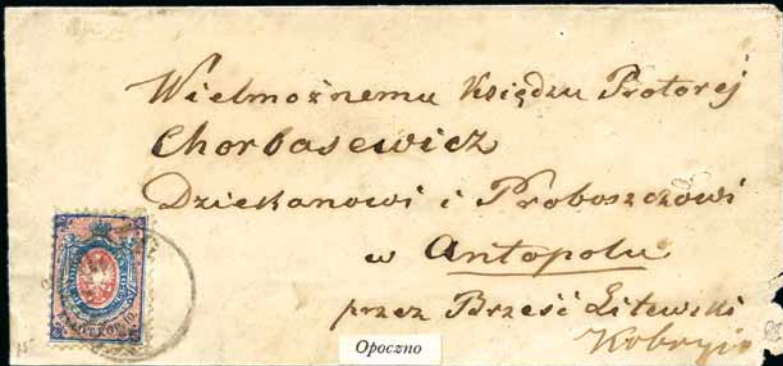 Wielmożnemu Księdzu Protorej
Chorbasewicz
Dziekanowi i Proboszczowi
w Antopolu
przez Brześć Litewski
Kobryń
Opoczno